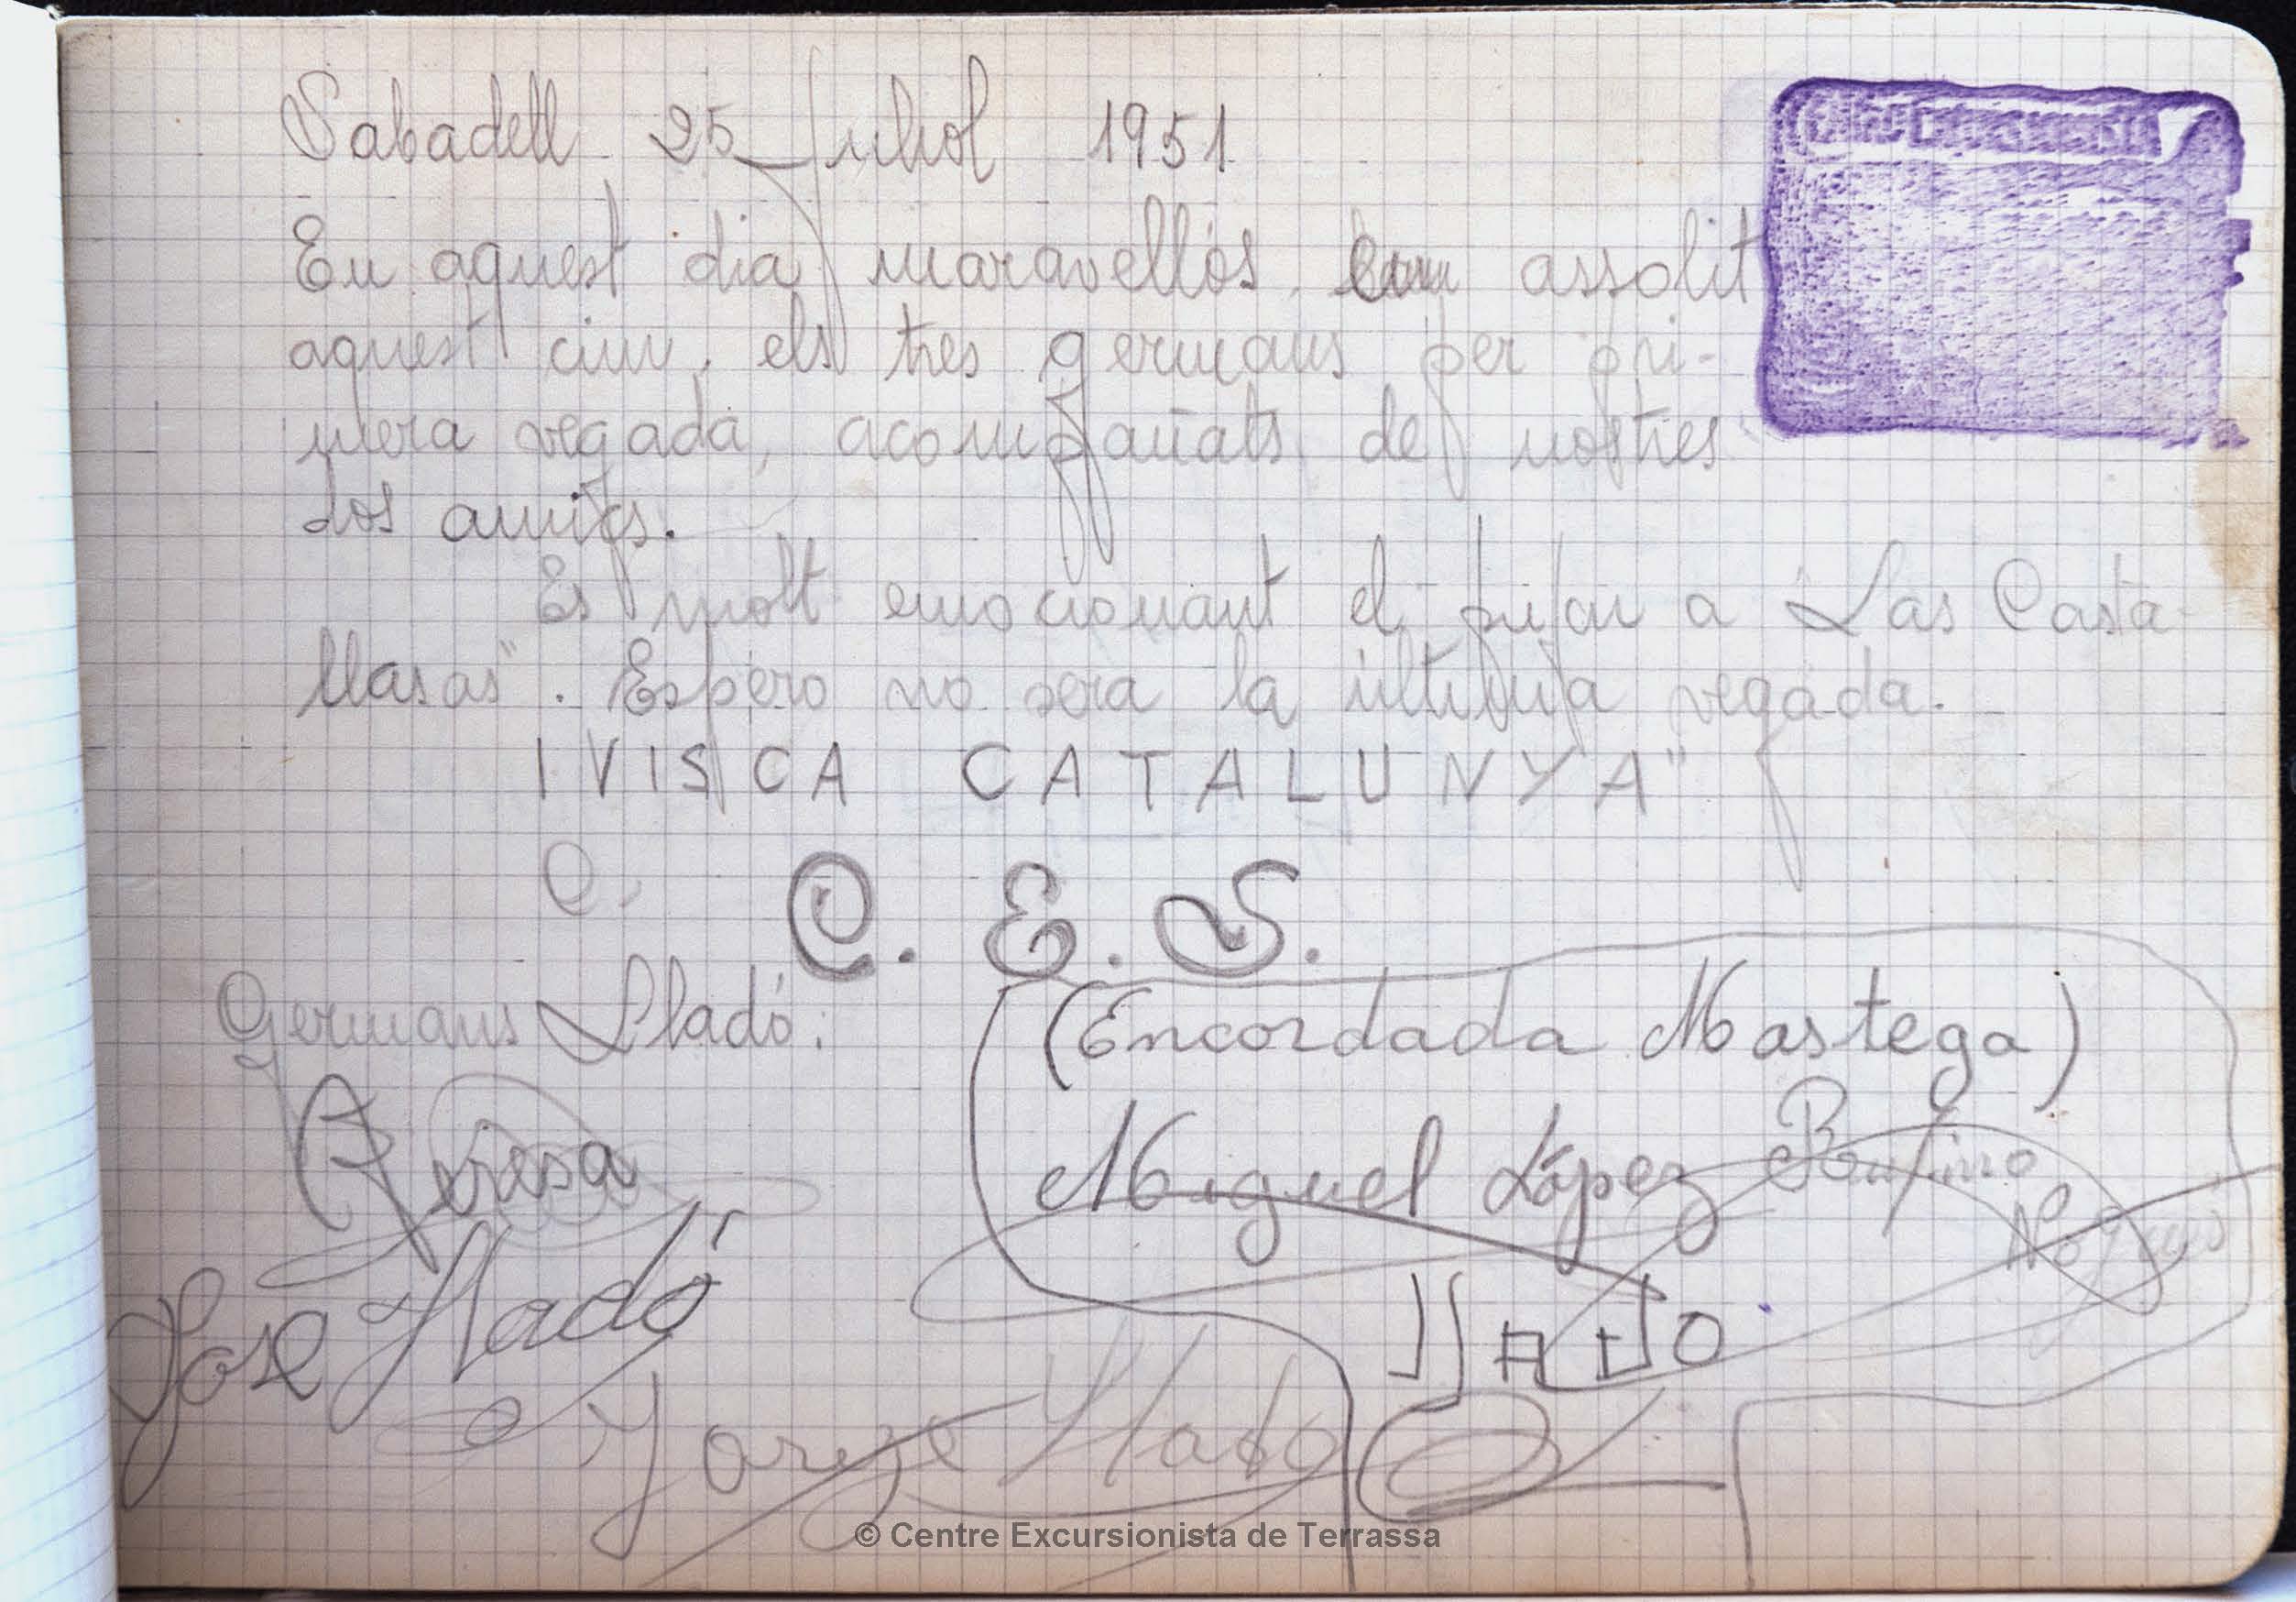 Sabadell 25 Juliol 1951
En aquest dia maravellós, em assolit
aquest cim, els tres germans per pri-
mera vegada, acompañats de nostres
dos amigs.
Es molt emocionant el pujar a "Las Casta-
llasas". Espero no sera la última vegada.
¡VISCA CATALUNYA"
C.
C. E. S.
Germans Lladó:
(Encordada Mastega)
Teresa
Miguel López Rufino
José Lladó
Jorge Lladó
© Centre Excursionista de Terrassa